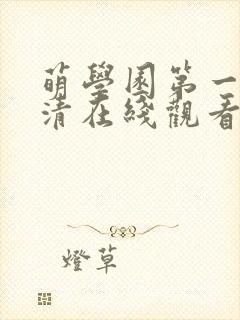 萌學園第一
清在綫觀看
燈草